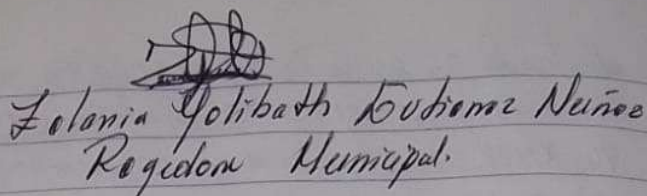 Zolania Yolibath Gutierrez Nuñez
Regidora Municipal.